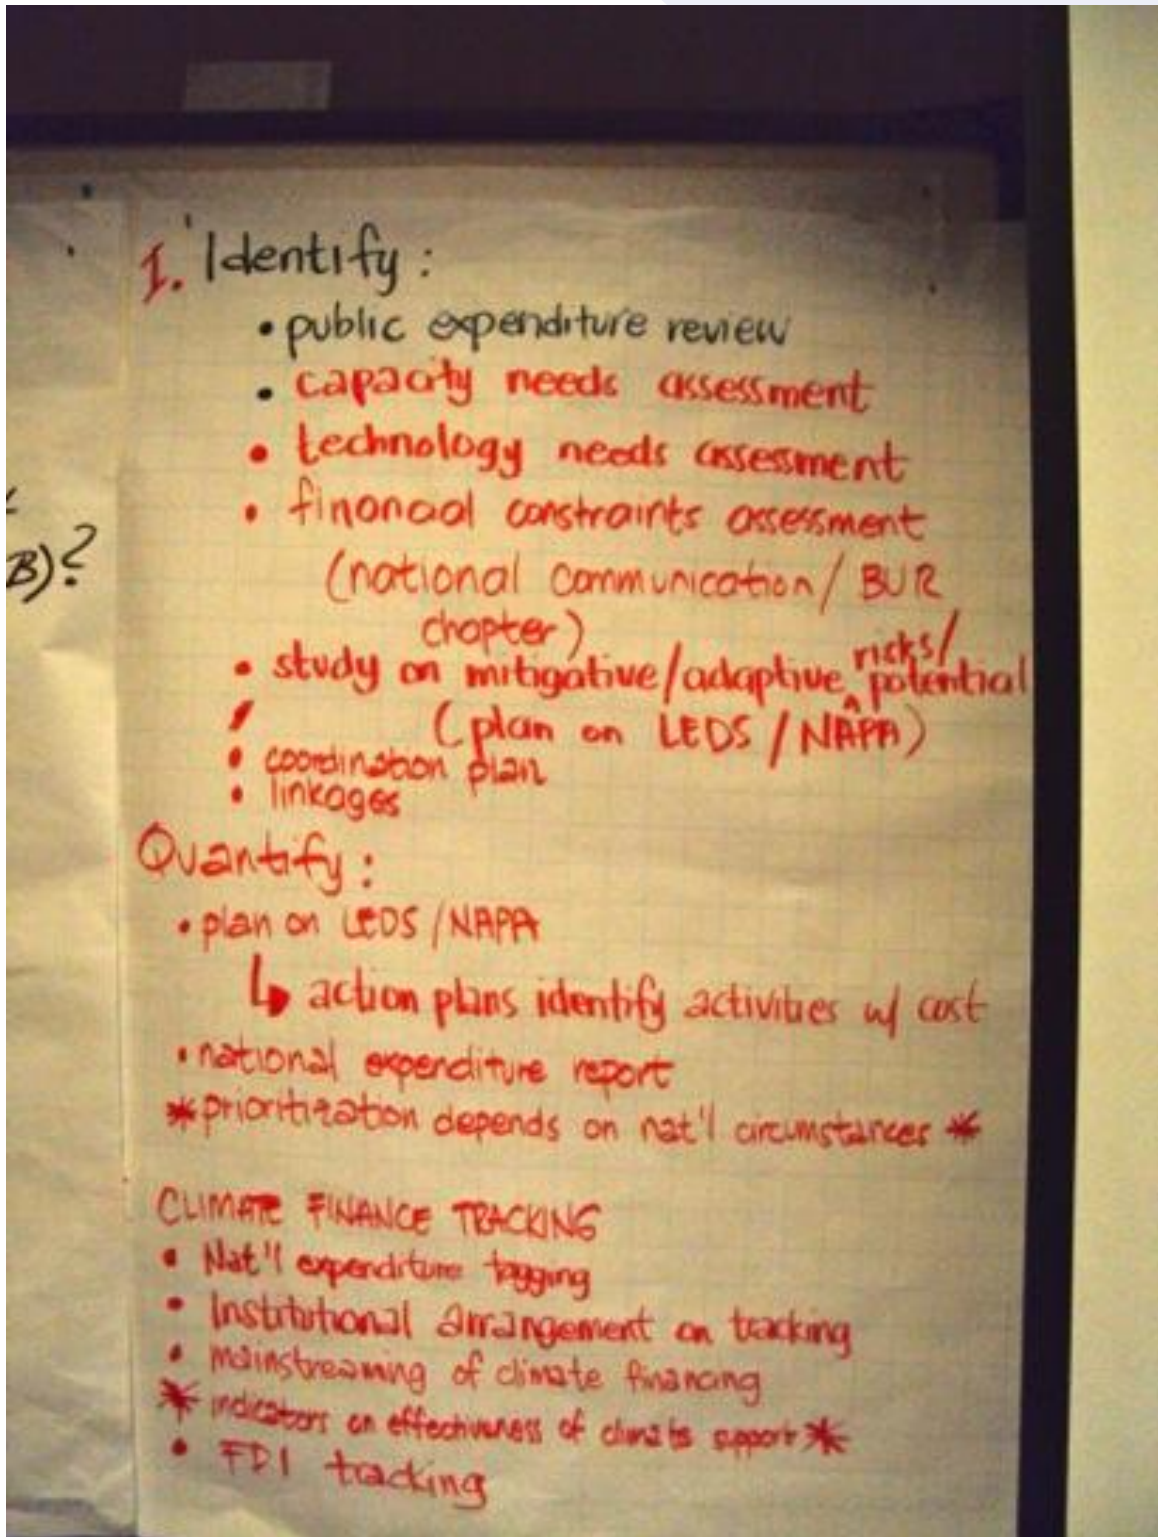 B)?
1. Identify:
• public expenditure review
• capacity needs assessment
• technology needs assessment
• financial constraints assessment
(national communication / BUR
chapter)
• study on mitigative/adaptive ^ risks/ potential
(plan on LEDS / NAPA)
• coordination plan
• linkages
Quantify:
• plan on LEDS / NAPA
↳ action plans identify activities w/ cost
• national expenditure report
* prioritization depends on nat'l circumstances *
CLIMATE FINANCE TRACKING
• Nat'l expenditure tagging
• Institutional arrangement on tracking
• mainstreaming of climate financing
* indicators on effectiveness of climate support *
• FDI tracking